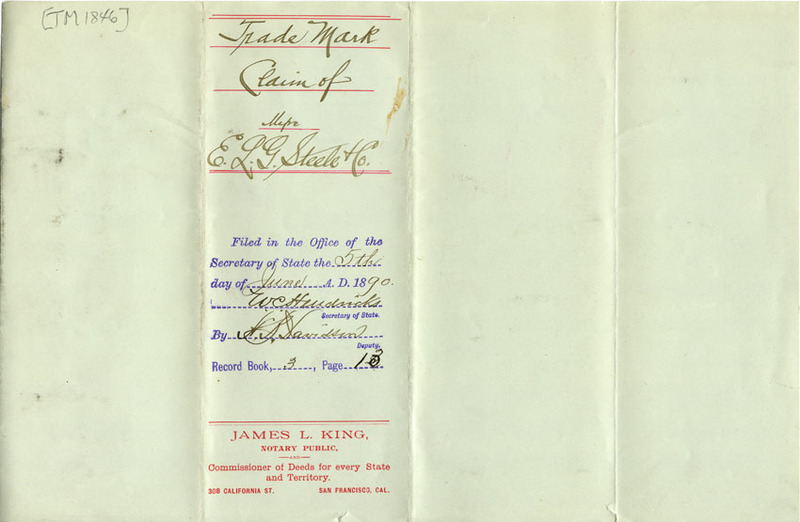 [TM 1846]
Trade Mark
Claim of
Messrs
E. L. G. Steele & Co.
Filed in the Office of the
Secretary of State the 5th
day of June A. D. 1890.
W C Hendricks
Secretary of State.
By Davidson
Deputy.
Record Book, 3, Page 13
JAMES L. KING,
NOTARY PUBLIC,
—AND—
Commissioner of Deeds for every State
and Territory.
308 CALIFORNIA ST. SAN FRANCISCO, CAL.